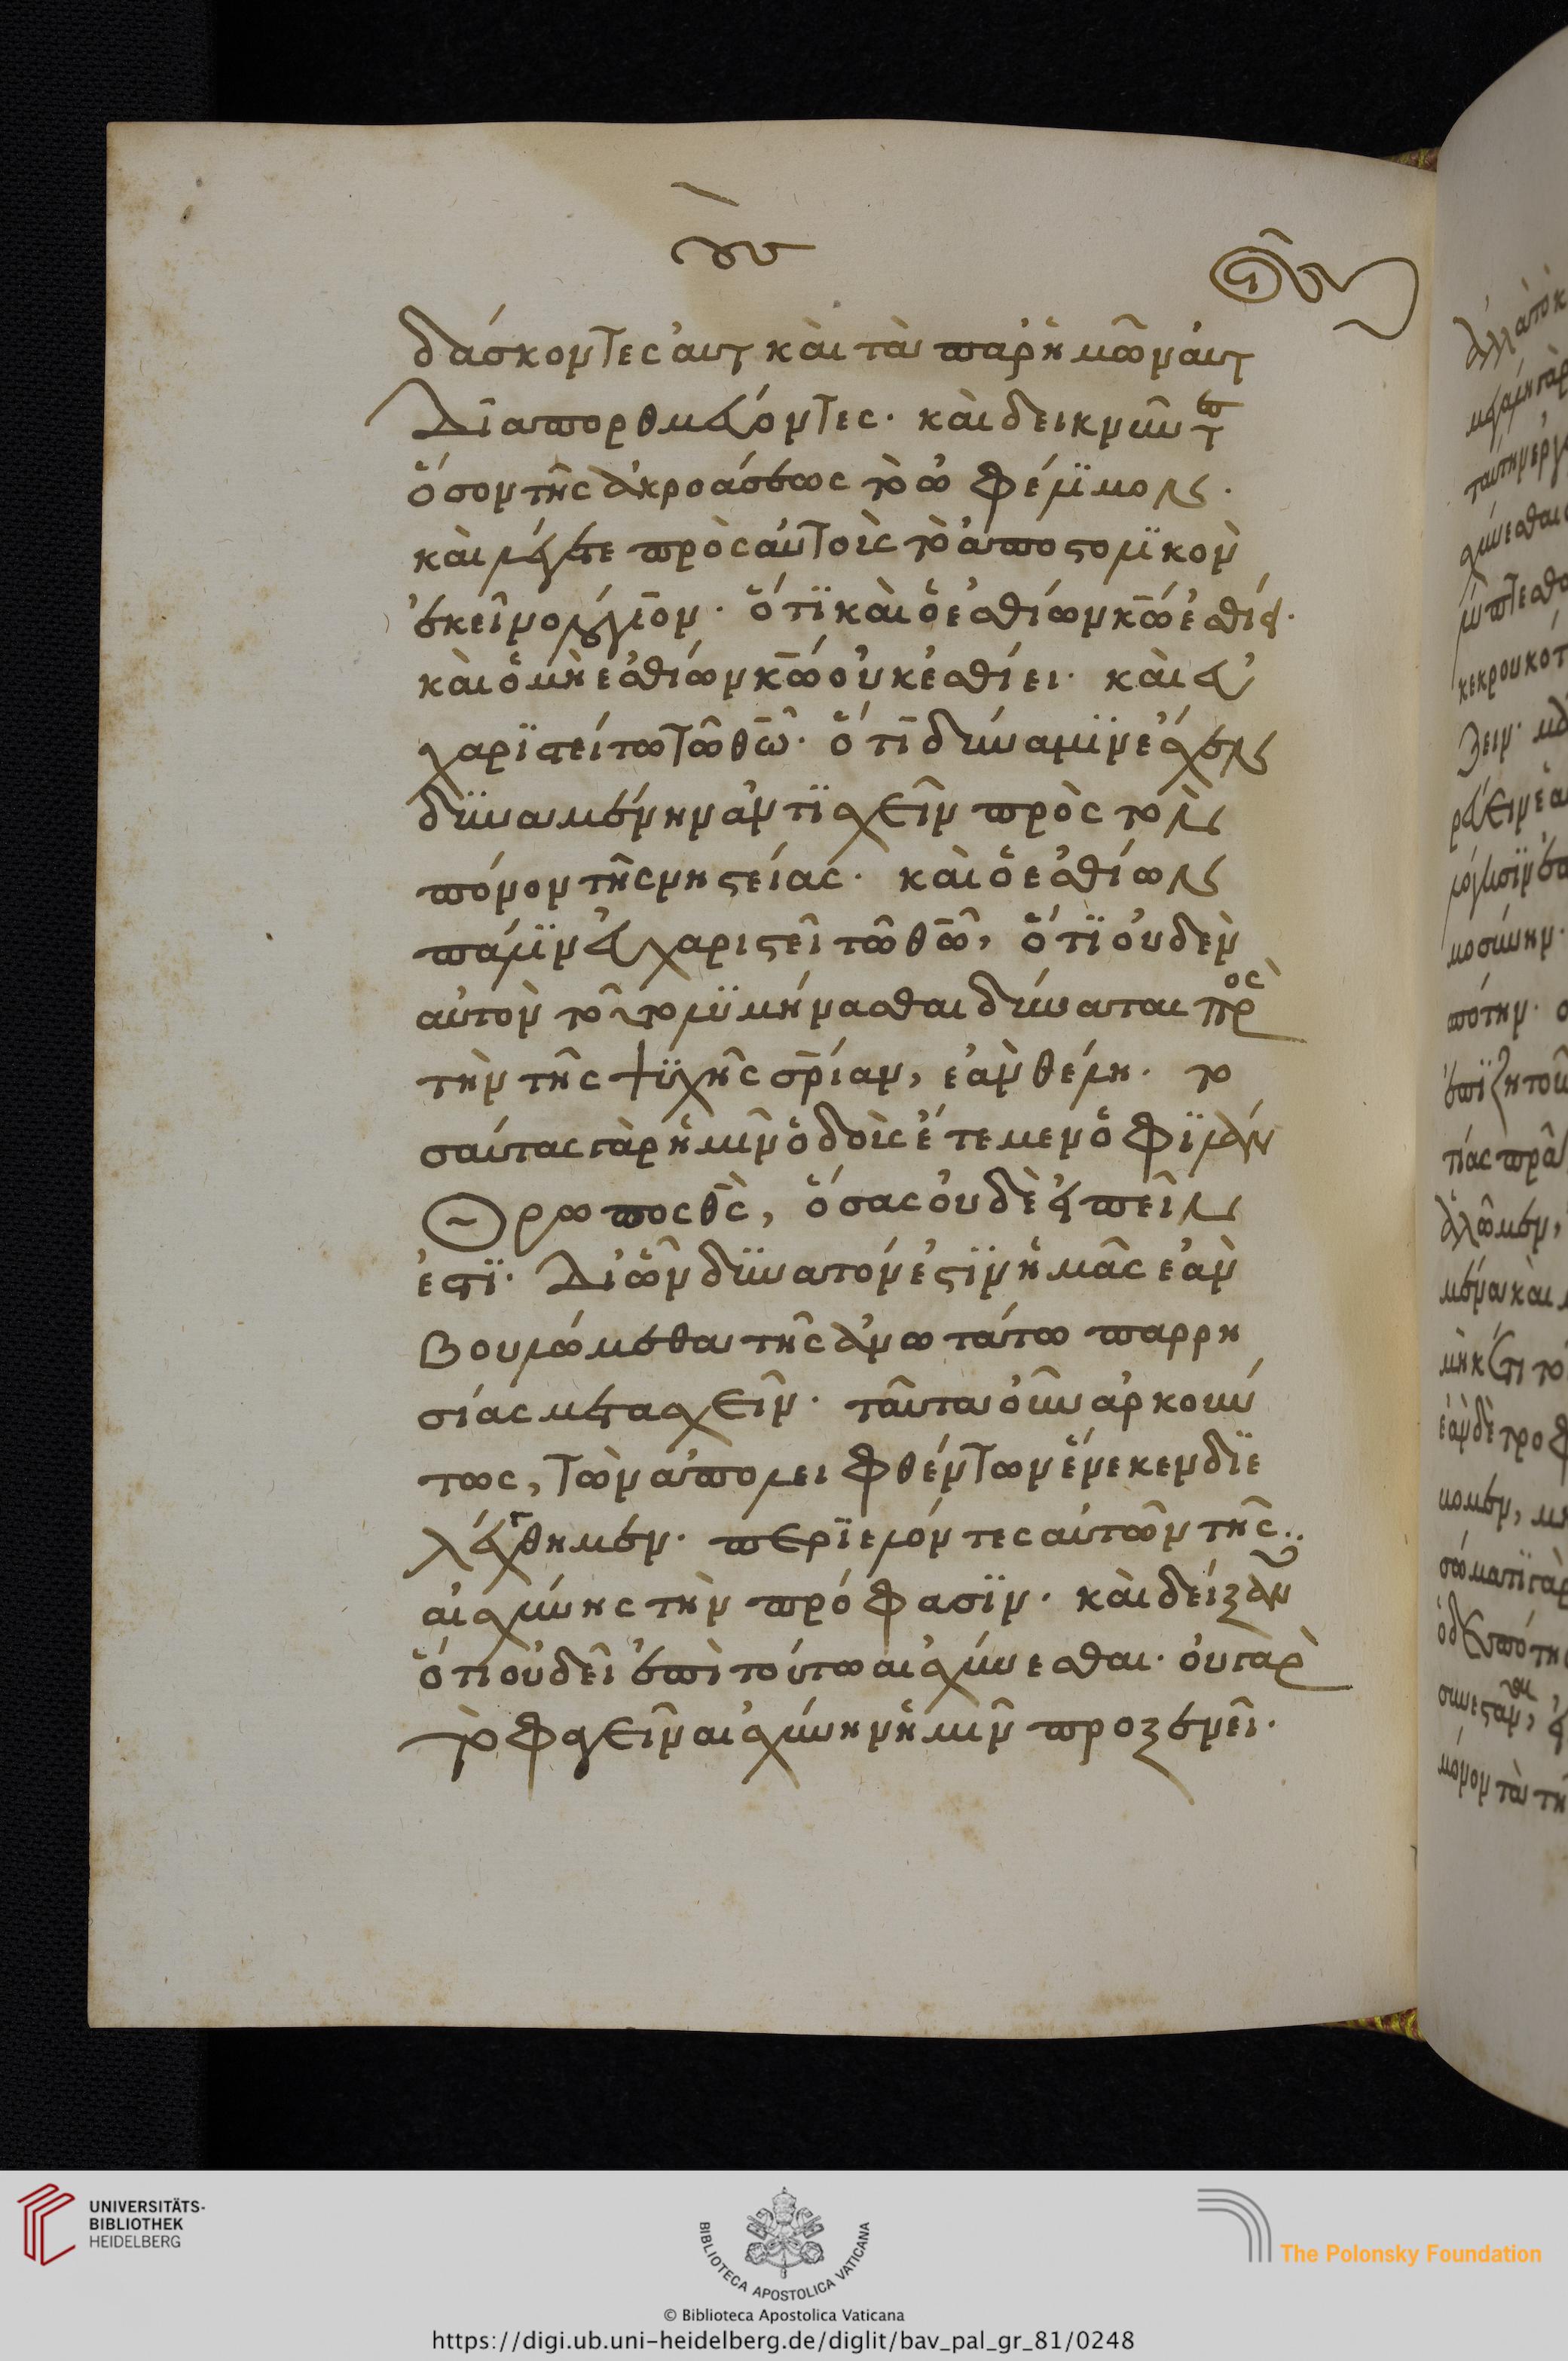 δάσκοντες αὐτ καὶ τὰ παρ' ἡμῶν αὐτ
Διαπορθμεύοντες· καὶ δεικνῦντ
ὅσον τῆς ἀκροάσεως τὸ ὠφέλϊμον·
καὶ λέγετε πρὸς αὐτοὺς τὸ ἀποστολϊκὸν
ἐκεῖνο λόγιον· ὅτϊ καὶ ὁ ἐσθίων κ̅ω̅ ἐσθίει·
καὶ ὁ μὴ ἐσθίων κ̅ω̅ οὐκ ἐσθίει· καὶ εὐ
χαρϊστείτω τῶ θ̅ω̅· ὅτι δύναμϊν ἔχεν
δϋναμένην ἀντϊσχεῖν πρὸς τὸν
πόνον τῆς νηστείας· καὶ ὁ ἐσθίων
πάλϊν εὐχαριστεῖ τῶ θ̅ω̅, ὅτϊ οὐδὲν
αὐτὸν τοῦτο λϋμήνασθαι δύναται πρὸς
τὴν τῆς ψϋχῆς σ̅ρίαν, ἐὰν θέλη· το
σαύτας γὰρ ἡμῖν ὁδοὺς ἔτεμεν ὁ φϊλάν
θρωπος θ̅ς̅, ὅσας οὐδὲ εἰπεῖν
ἐστϊ· Δι' ὧν δϋνατόν ἐστϊν ἡμᾶς ἐὰν
βουλώμεθα τῆς ἀνωτάτω παρρη
σίας μετασχεῖν· ταῦτα οὖν ἀρκούν
τως, τῶν ἀπολειφθέντων ἕνεκεν διε
λέχθημεν· περϊελόντες αὐτῶν τῆς..
αἰσχύνης τὴν πρόφασϊν· καὶ δείξαντ
ὅτι οὐ δεῖ ἐπὶ τούτω αἰσχύνεσθαι· οὐ γὰρ
τὸ φαγεῖν αἰσχύνην ἡμῖν προξενεῖ·
UNIVERSITÄTS-
BIBLIOTHEK
HEIDELBERG
BIBLIOTECA APOSTOLICA VATICANA
The Polonsky Foundation
© Biblioteca Apostolica Vaticana
https://digi.ub.uni-heidelberg.de/diglit/bav_pal_gr_81/0248